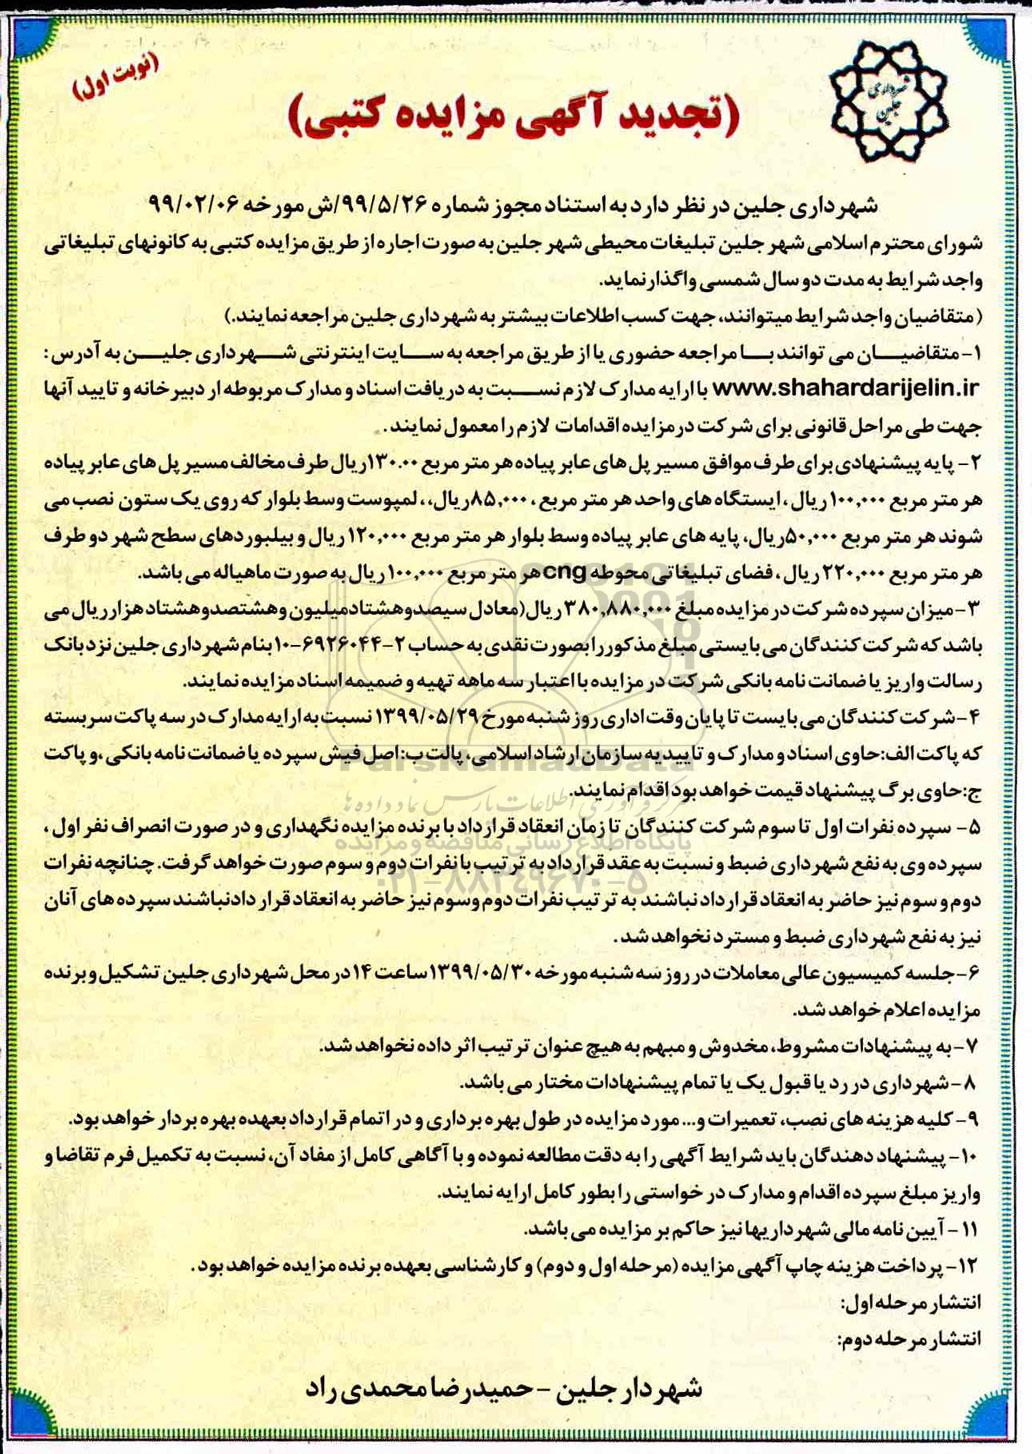 (نوبت اول)
شهرداری
جلین
(تجدید آگهی مزایده کتبی)
شهرداری جلین در نظر دارد به استناد مجوز شماره ۹۹/۵/۲۶/ش مورخه ۹۹/۰۲/۰۶
شورای محترم اسلامی شهر جلین تبلیغات محیطی شهر جلین به صورت اجاره از طریق مزایده کتبی به کانونهای تبلیغاتی
واجد شرایط به مدت دو سال شمسی واگذار نماید.
(متقاضیان واجد شرایط میتوانند، جهت کسب اطلاعات بیشتر به شهرداری جلین مراجعه نمایند.)
۱- متقاضیان می توانند با مراجعه حضوری یا از طریق مراجعه به سایت اینترنتی شهرداری جلین به آدرس :
www.shahardarijelin.ir با ارایه مدارک لازم نسبت به دریافت اسناد و مدارک مربوطه از دبیرخانه و تایید آنها
جهت طی مراحل قانونی برای شرکت درمزایده اقدامات لازم را معمول نمایند .
۲- پایه پیشنهادی برای طرف موافق مسیر پل های عابر پیاده هر متر مربع ۱۳۰.۰۰ریال طرف مخالف مسیر پل های عابر پیاده
هر متر مربع ۱۰۰,۰۰۰ ریال ، ایستگاه های واحد هر متر مربع ، ۸۵,۰۰۰ریال،، لمپوست وسط بلوار که روی یک ستون نصب می
شوند هر متر مربع ۵۰,۰۰۰ریال، پایه های عابر پیاده وسط بلوار هر متر مربع ۱۲۰,۰۰۰ ریال و بیلبوردهای سطح شهر دو طرف
هر متر مربع ۲۲۰,۰۰۰ ریال ، فضای تبلیغاتی محوطه cng هر متر مربع ۱۰۰,۰۰۰ ریال به صورت ماهیاله می باشد.
۳-میزان سپرده شرکت در مزایده مبلغ ۳۸۰,۸۸۰,۰۰۰ ریال(معادل سیصدوهشتادمیلیون وهشتصدوهشتاد هزار ریال می
باشد که شرکت کنندگان می بایستی مبلغ مذکور را بصورت نقدی به حساب ۲-۶۹۲۶۰۴۴-۱۰ بنام شهرداری جلین نزد بانک
رسالت واریز یا ضمانت نامه بانکی شرکت در مزایده با اعتبار سه ماهه تهیه و ضمیمه اسناد مزایده نمایند.
۴-شرکت کنندگان می بایست تا پایان وقت اداری روز شنبه مورخ ۱۳۹۹/۰۵/۲۹ نسبت به ارایه مدارک در سه پاکت سربسته
که پاکت الف:حاوی اسناد و مدارک و تاییدیه سازمان ارشاد اسلامی، پالت ب:اصل فیش سپرده یا ضمانت نامه بانکی ،و پاکت
ج:حاوی برگ پیشنهاد قیمت خواهد بود اقدام نمایند.
۵- سپرده نفرات اول تا سوم شرکت کنندگان تا زمان انعقاد قرارداد با برنده مزایده نگهداری و در صورت انصراف نفر اول ،
سپرده وی به نفع شهرداری ضبط و نسبت به عقد قرارداد به ترتیب با نفرات دوم و سوم صورت خواهد گرفت. چنانچه نفرات
دوم و سوم نیز حاضر به انعقاد قرارداد نباشند به ترتیب نفرات دوم وسوم نیز حاضر به انعقاد قرار دادنباشند سپرده های آنان
نیز به نفع شهرداری ضبط و مسترد نخواهد شد .
۶-جلسه کمیسیون عالی معاملات در روز سه شنبه مورخه ۱۳۹۹/۰۵/۳۰ساعت ۱۴ در محل شهرداری جلین تشکیل و برنده
مزایده اعلام خواهد شد.
۷-به پیشنهادات مشروط، مخدوش و مبهم به هیچ عنوان ترتیب اثر داده نخواهد شد.
۸-شهرداری در رد یا قبول یک یا تمام پیشنهادات مختار می باشد.
۹-کلیه هزینه های نصب، تعمیرات و... مورد مزایده در طول بهره برداری و در اتمام قرارداد بعهده بهره بردار خواهد بود.
۱۰- پیشنهاد دهندگان باید شرایط آگهی را به دقت مطالعه نموده و با آگاهی کامل از مفاد آن، نسبت به تکمیل فرم تقاضا و
واریز مبلغ سپرده اقدام و مدارک در خواستی را بطور کامل ارایه نمایند.
۱۱- آیین نامه مالی شهرداریها نیز حاکم بر مزایده می باشد.
۱۲- پرداخت هزینه چاپ آگهی مزایده (مرحله اول و دوم) و کارشناسی بعهده برنده مزایده خواهد بود .
انتشار مرحله اول:
انتشار مرحله دوم:
شهردار جلین - حمیدرضا محمدی راد
ParsNamadData
پایگاه اطلاع رسانی مناقصه و مزایده
۰۲۱-۸۸۳۴۹۶۷۰-۵